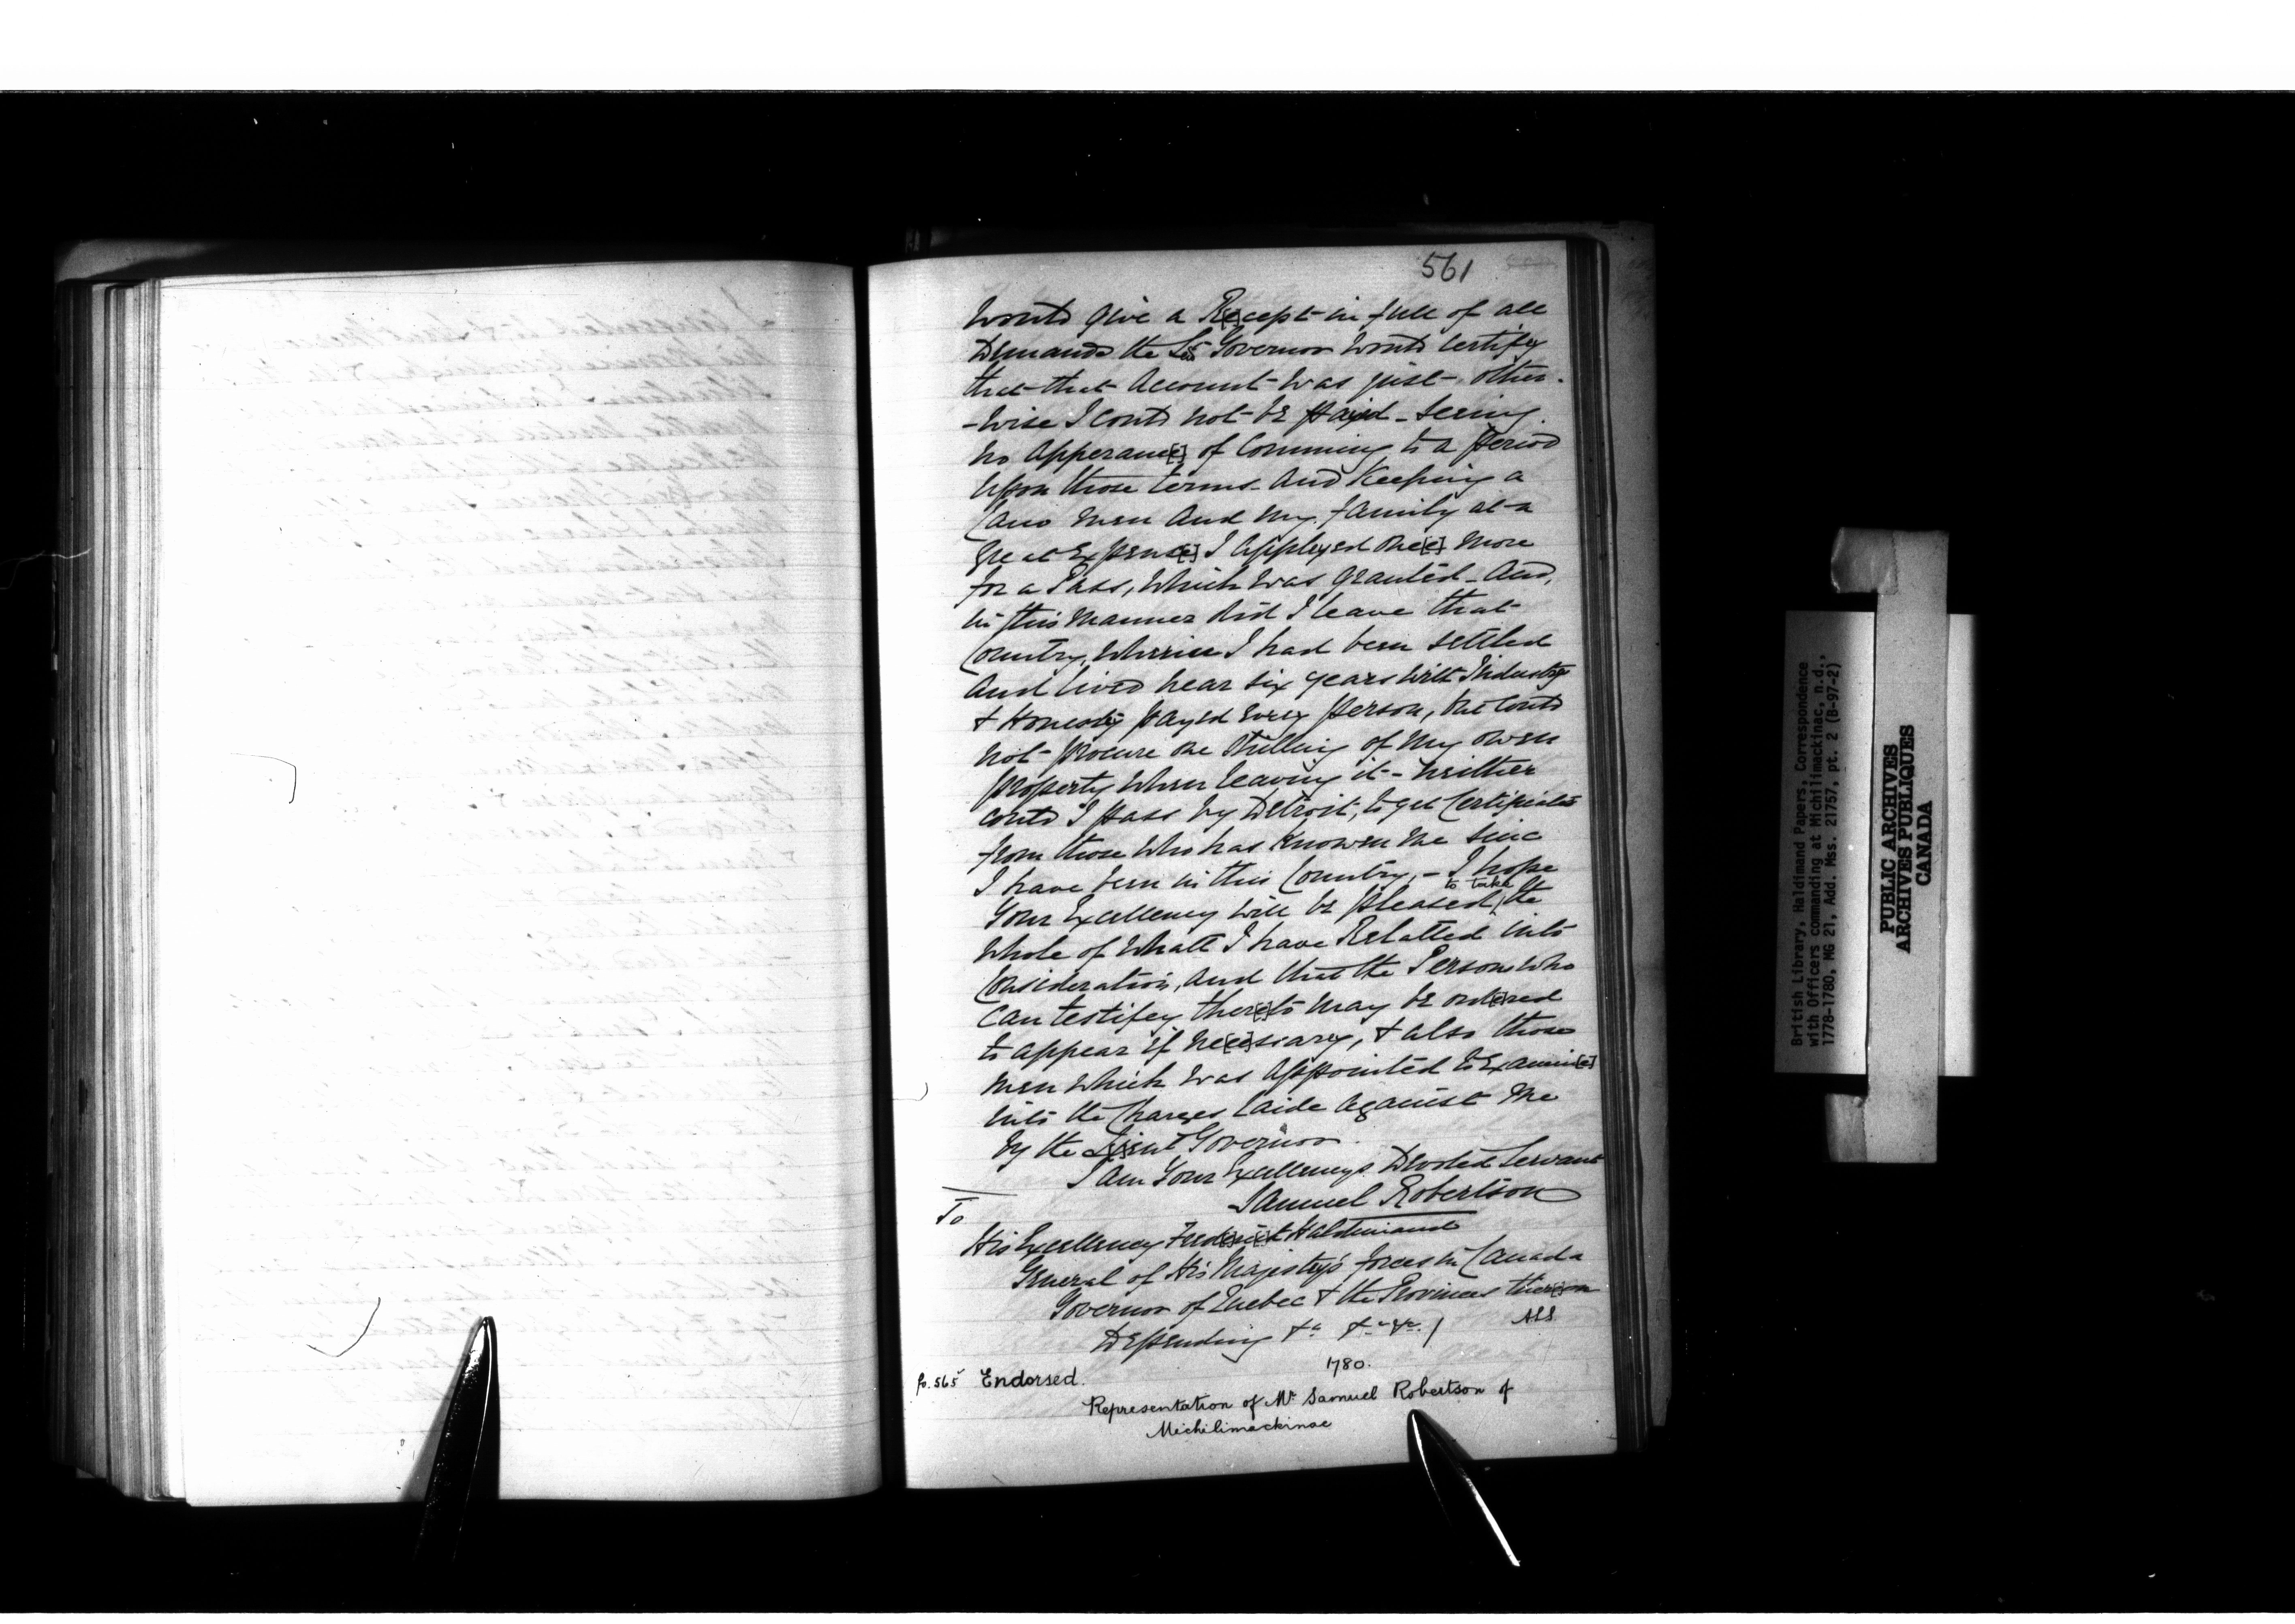 561
Would give a R[e]cept in full of all
Demands the Lt Governor Would Certify
that that Account was just, other-
-wise I Could not be paid - Seeing
no Apperanc[e] of Comming to a period
Upon those terms - And Keeping a
Cano men And my family at a
great Expenc[e] I Applyed onc[e] more
for a Pass, Which was granted - And,
in this manner did I leave that
Country, Wherin I had been Settled
And lived near six years with Industry
& Honesty payed every person, but Could
not procure one Shilling of my owen
property when leaving it - neither
Could I pass by Detroit, to get Certificates
from those Who has Knowen me Sinc
I have been in this Country, - I hope
Your Excellency Will be pleased to take the
Whole of Whatt I have Relatted into
Consideration, and that the Persons Who
Can testifey ther[e]to may be ord[e]red
to appear if ne[ce]ssiary, & also those
men which was Appointed to Examin[e]
into the Charges laide Against me
by the Lieut Governor.
I am Your Excellencys Devoted Servant
Samuel Robertson
To
His Excellency Fred[e]ri[c]k Haldimand
General of His Majesty's forces in Canada
Governor of Quebec & the Provinces ther[e]on
Depending &c &c &c /
ALS
1780.
fo. 565 Endorsed.
Representation of Mr Samuel Robertson of
Michilimackinac
British Library, Haldimand Papers, Correspondence
with Officers commanding at Michilimackinac, n.d.,
1778-1780, MG 21, Add. Mss. 21757, pt. 2 (B-97-2)
PUBLIC ARCHIVES
ARCHIVES PUBLIQUES
CANADA